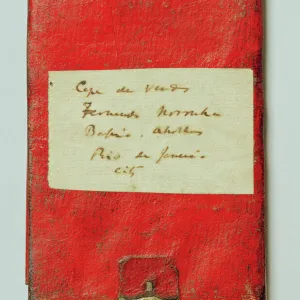 Cape de Verds
Fernando Noronha
Bahia. Abrolhos
Rio de Janeiro
City